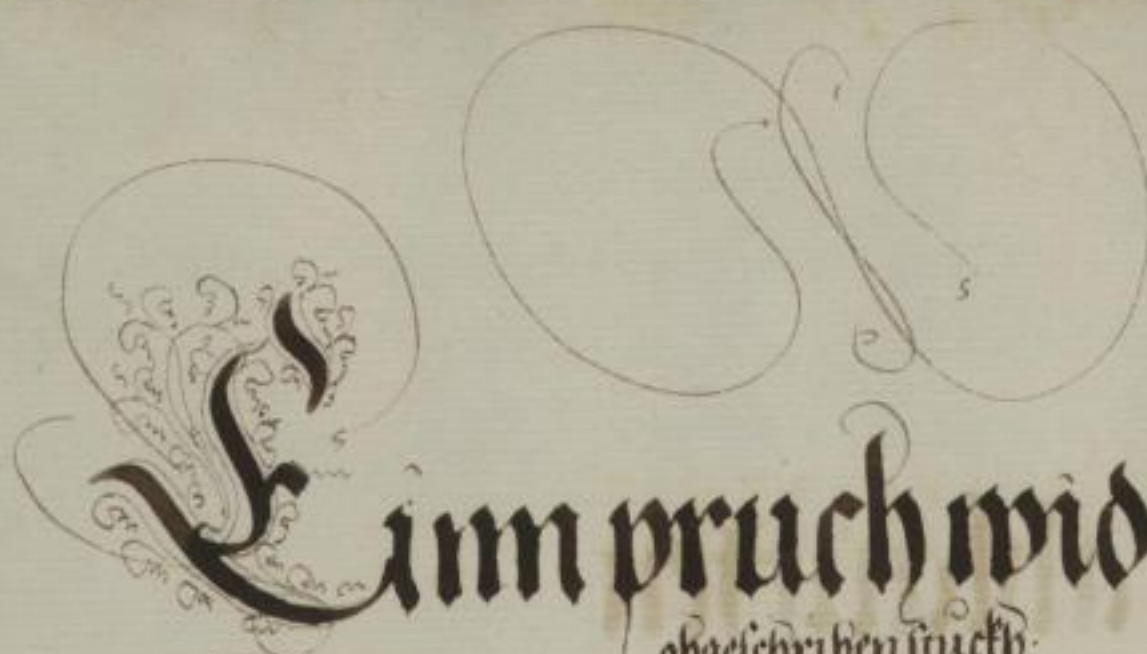 Einn pruch wid
obgeschriben stuckh